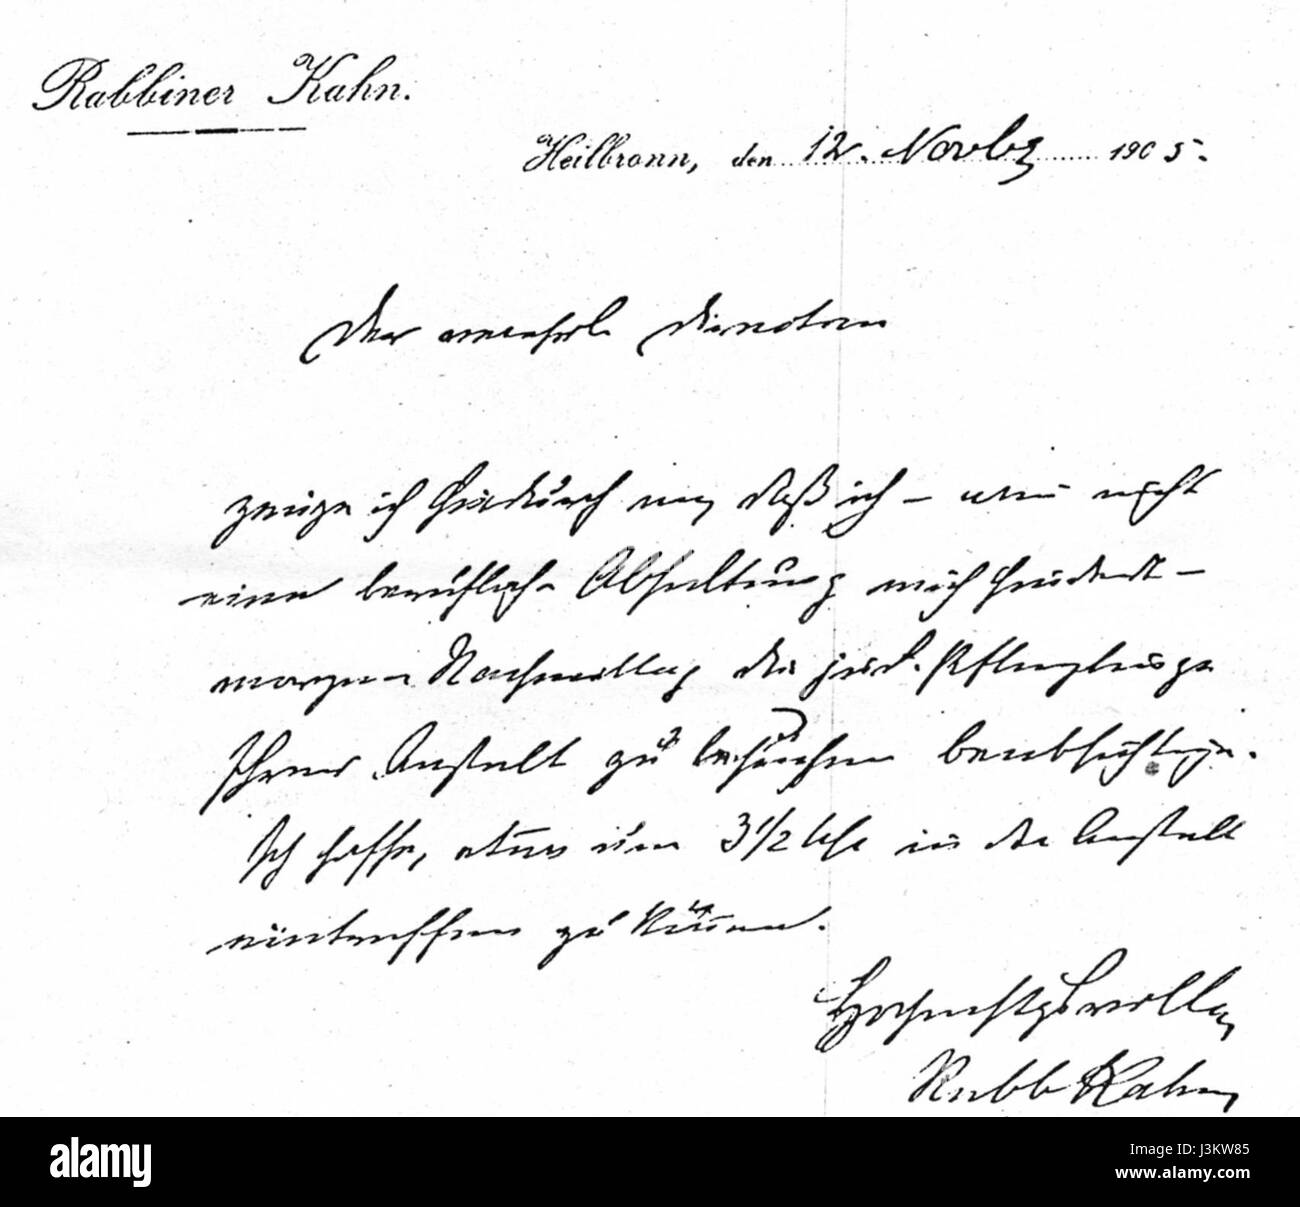 Rabbiner Kahn.
Heilbronn, den 12. Novbr 1905.
Der verehrl. Direktion
zeige ich hierdurch an, daß ich – wenn nicht
eine berufliche Abhaltung mich hindert –
morgen Nachmittag die jüd. Pfleglinge
Ihrer Anstalt zu besuchen beabsichtige.
Ich hoffe, etwa um 3 1/2 Uhr in der Anstalt
eintreffen zu können.
Hochachtungsvollst
Rabb Kahn
alamy stock photo
J3KW85
www.alamy.com